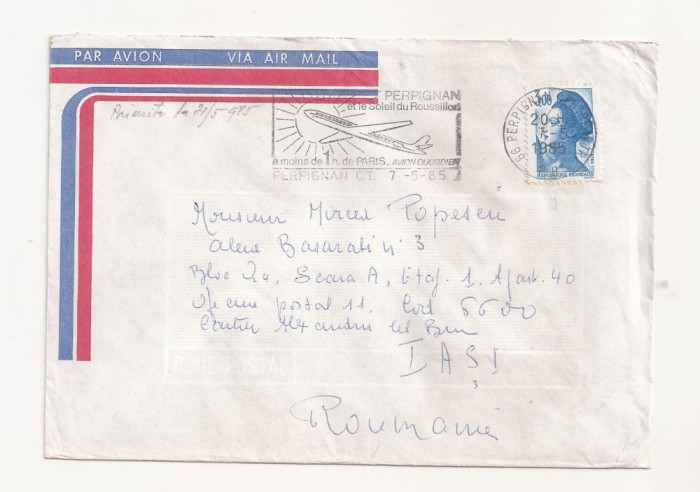 PAR AVION VIA AIR MAIL
PERPIGNAN
et le Soleil du Roussillon
à moins de 1 h. de PARIS.. AVION QUOTIDIEN
PERPIGNAN C.T. 7 -5-85
66 PERPIGNAN
20
7-5
1985
3,00
REPUBLIQUE FRANCAISE
la 21/5 985
Monsieur Mircea Popescu
aleea Basarabi n° 3
Bloc Scara A, Etaj. 1. Apart. 40
Oficiul postal 11. Cod 6600
Cartier Alexandru cel Bun
IAŞI
Roumanie